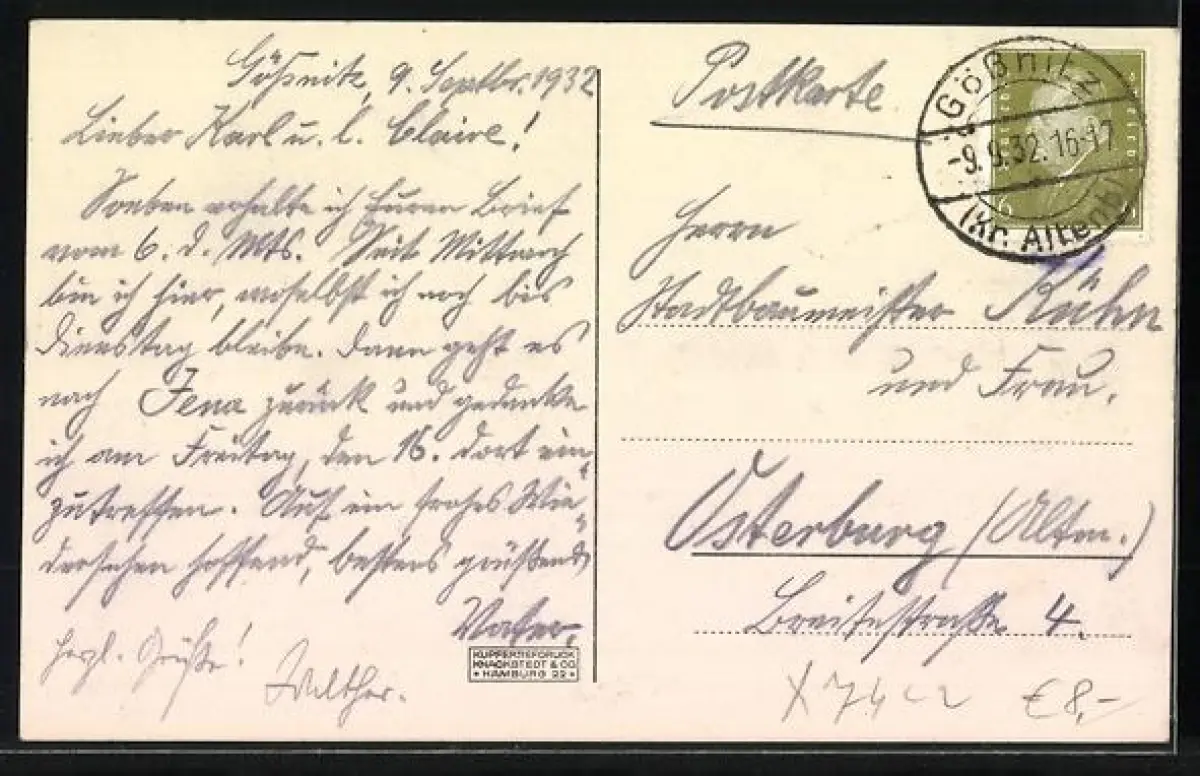 Gößnitz, 9. Septbr. 1932
Lieber Karl u. l. Claire!
Soeben erhalte ich Euren Brief
vom 6. d. Mts. Seit Mittwoch
bin ich hier, woselbst ich noch bis
Dienstag bleibe. Dann geht es
nach Jena zurück und gedenke
ich am Freitag, den 16. dort ein-
zutreffen. Auf ein frohes Wie-
dersehen hoffend, bestens grüßend
Vater.
Herzl. Grüße!
Walther.
KUPFERTIEFDRUCK
KNACKSTEDT & CO
HAMBURG 22
Postkarte
GÖßnitz
-9.9.32.16-17
(Kr. Altenb)
6
Herrn
Stadtbaumeister Kühn
und Frau.
Osterburg (Altm.)
Breitestraße 4.
€ 8,-